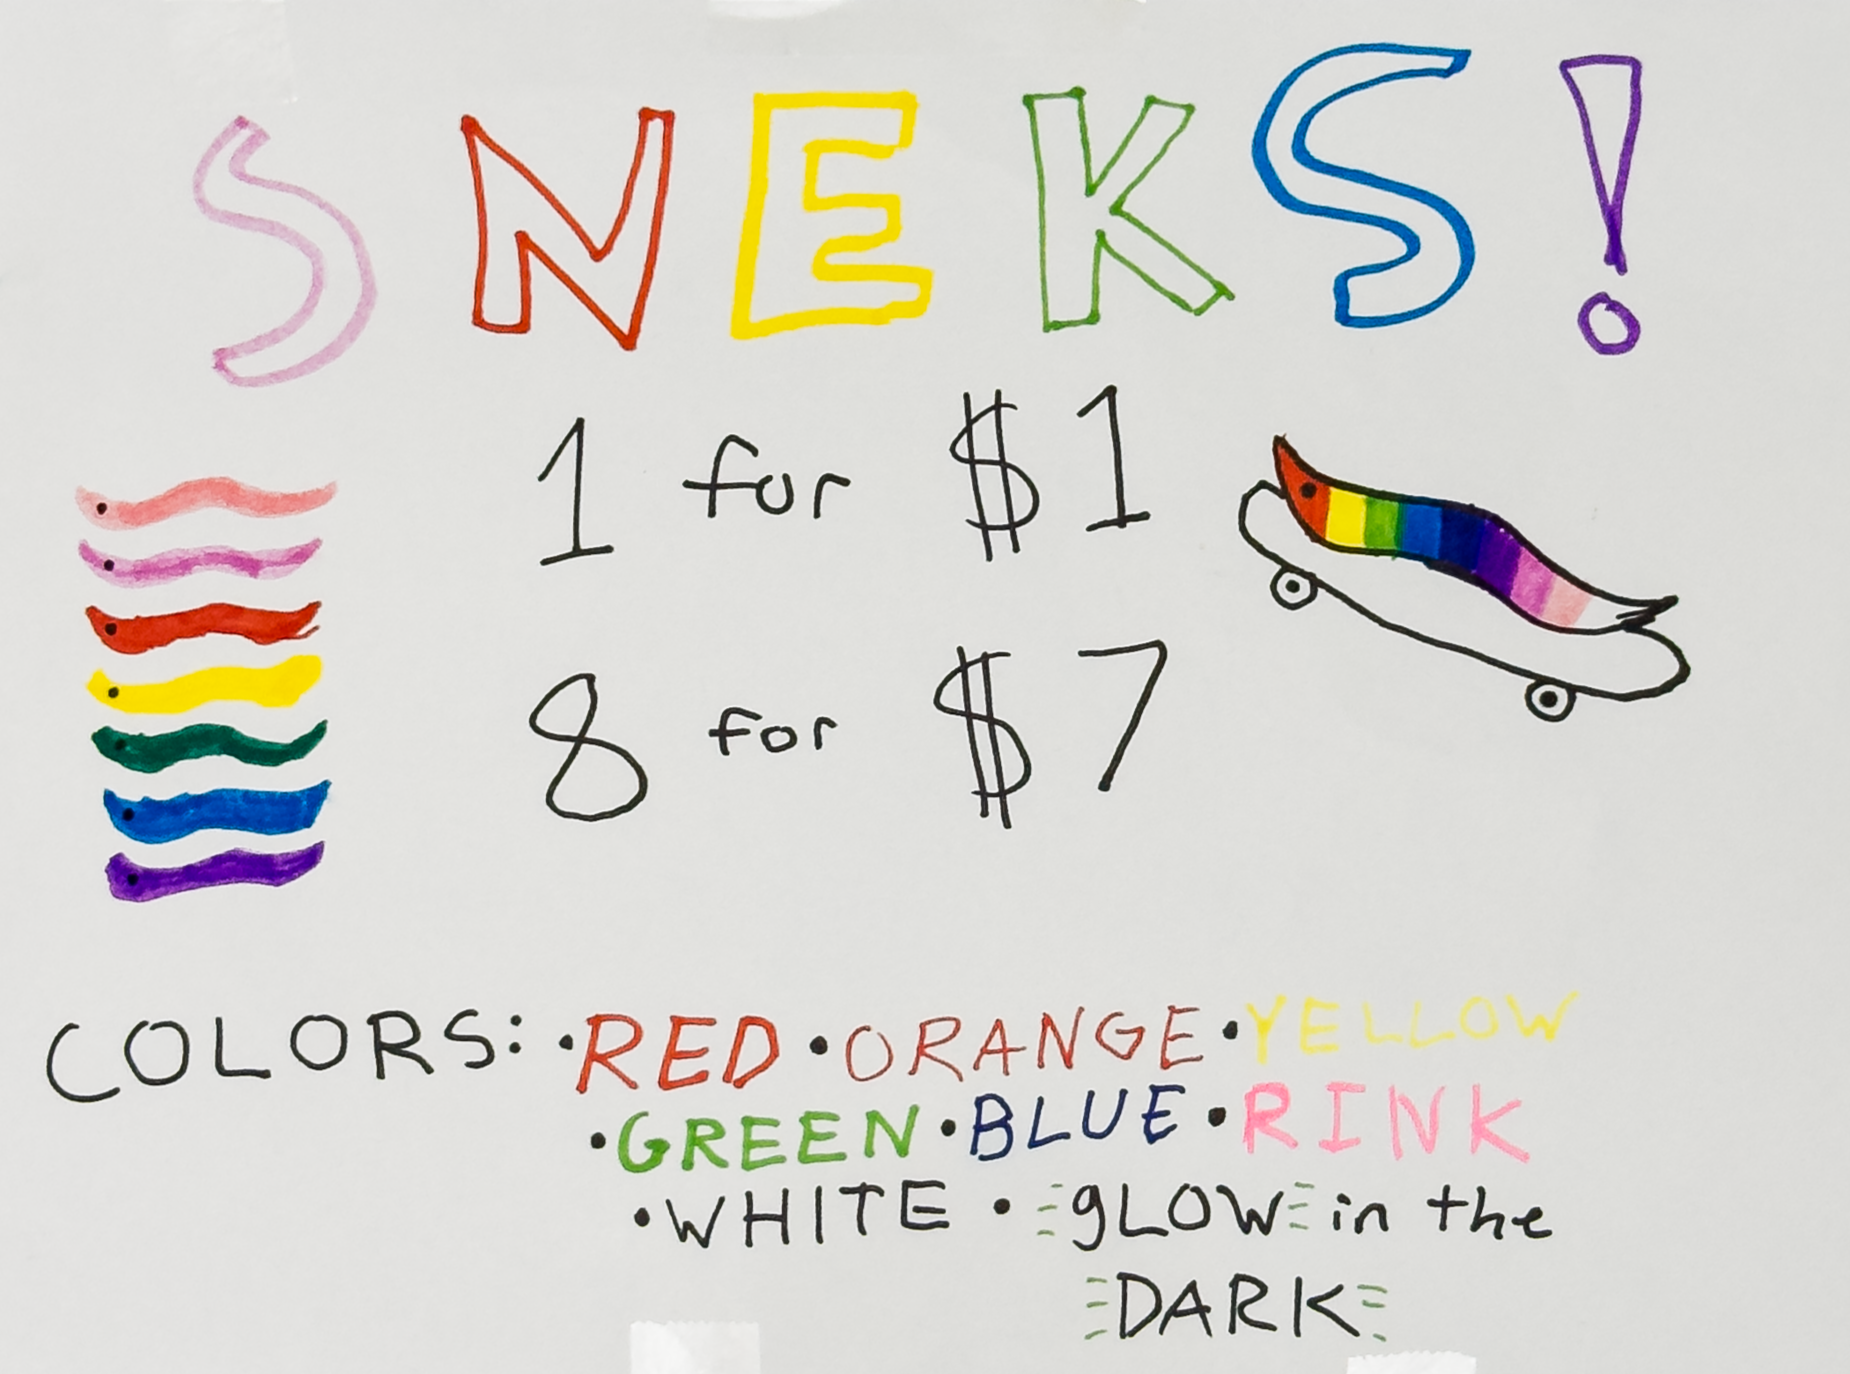 SNEKS!
1 for $1
8 for $7
COLORS: •RED •ORANGE •YELLOW
•GREEN •BLUE •RINK
•WHITE • gLOW in the
DARK